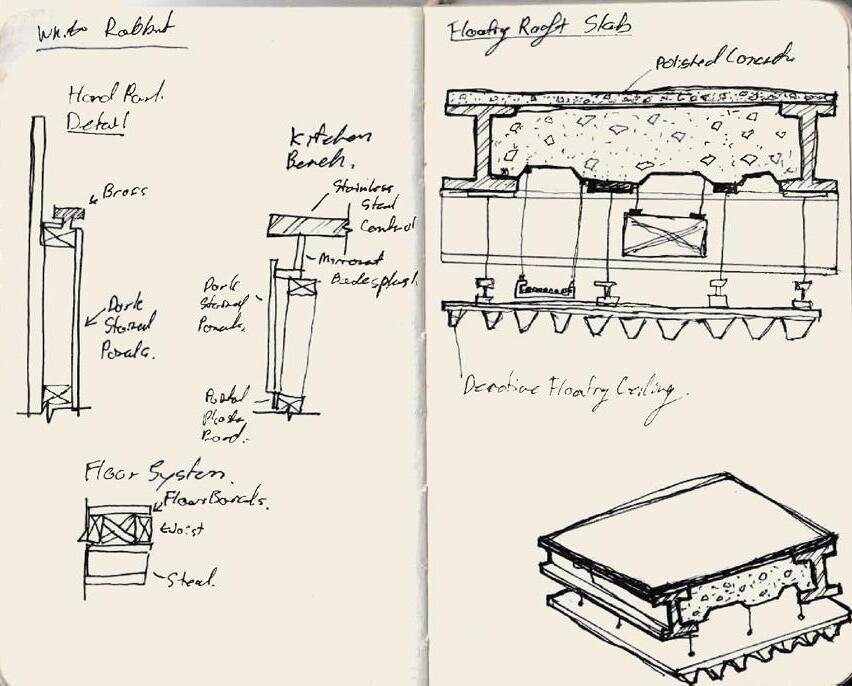 White Rabbit
Hand Part.
Detail
Brass
Dark
Stained
Panels.
Kitchen
Bench.
Stainless
Steel
Mirrored
Dark
Stained
Panels.
Board.
Floor System.
Floor Boards.
Joist
Steel.
Floating Raft Slab
Polished Concrete
Floating Ceiling.